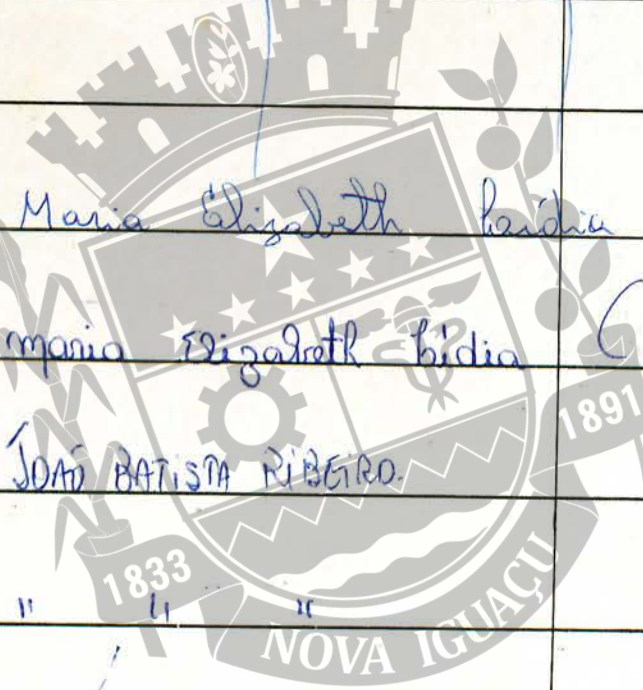 Maria Elizabeth Laídia
maria Elizabeth Lídia
JOÃO BATISTA RIBEIRO.
" " "
1833
NOVA IGUAÇU
1891